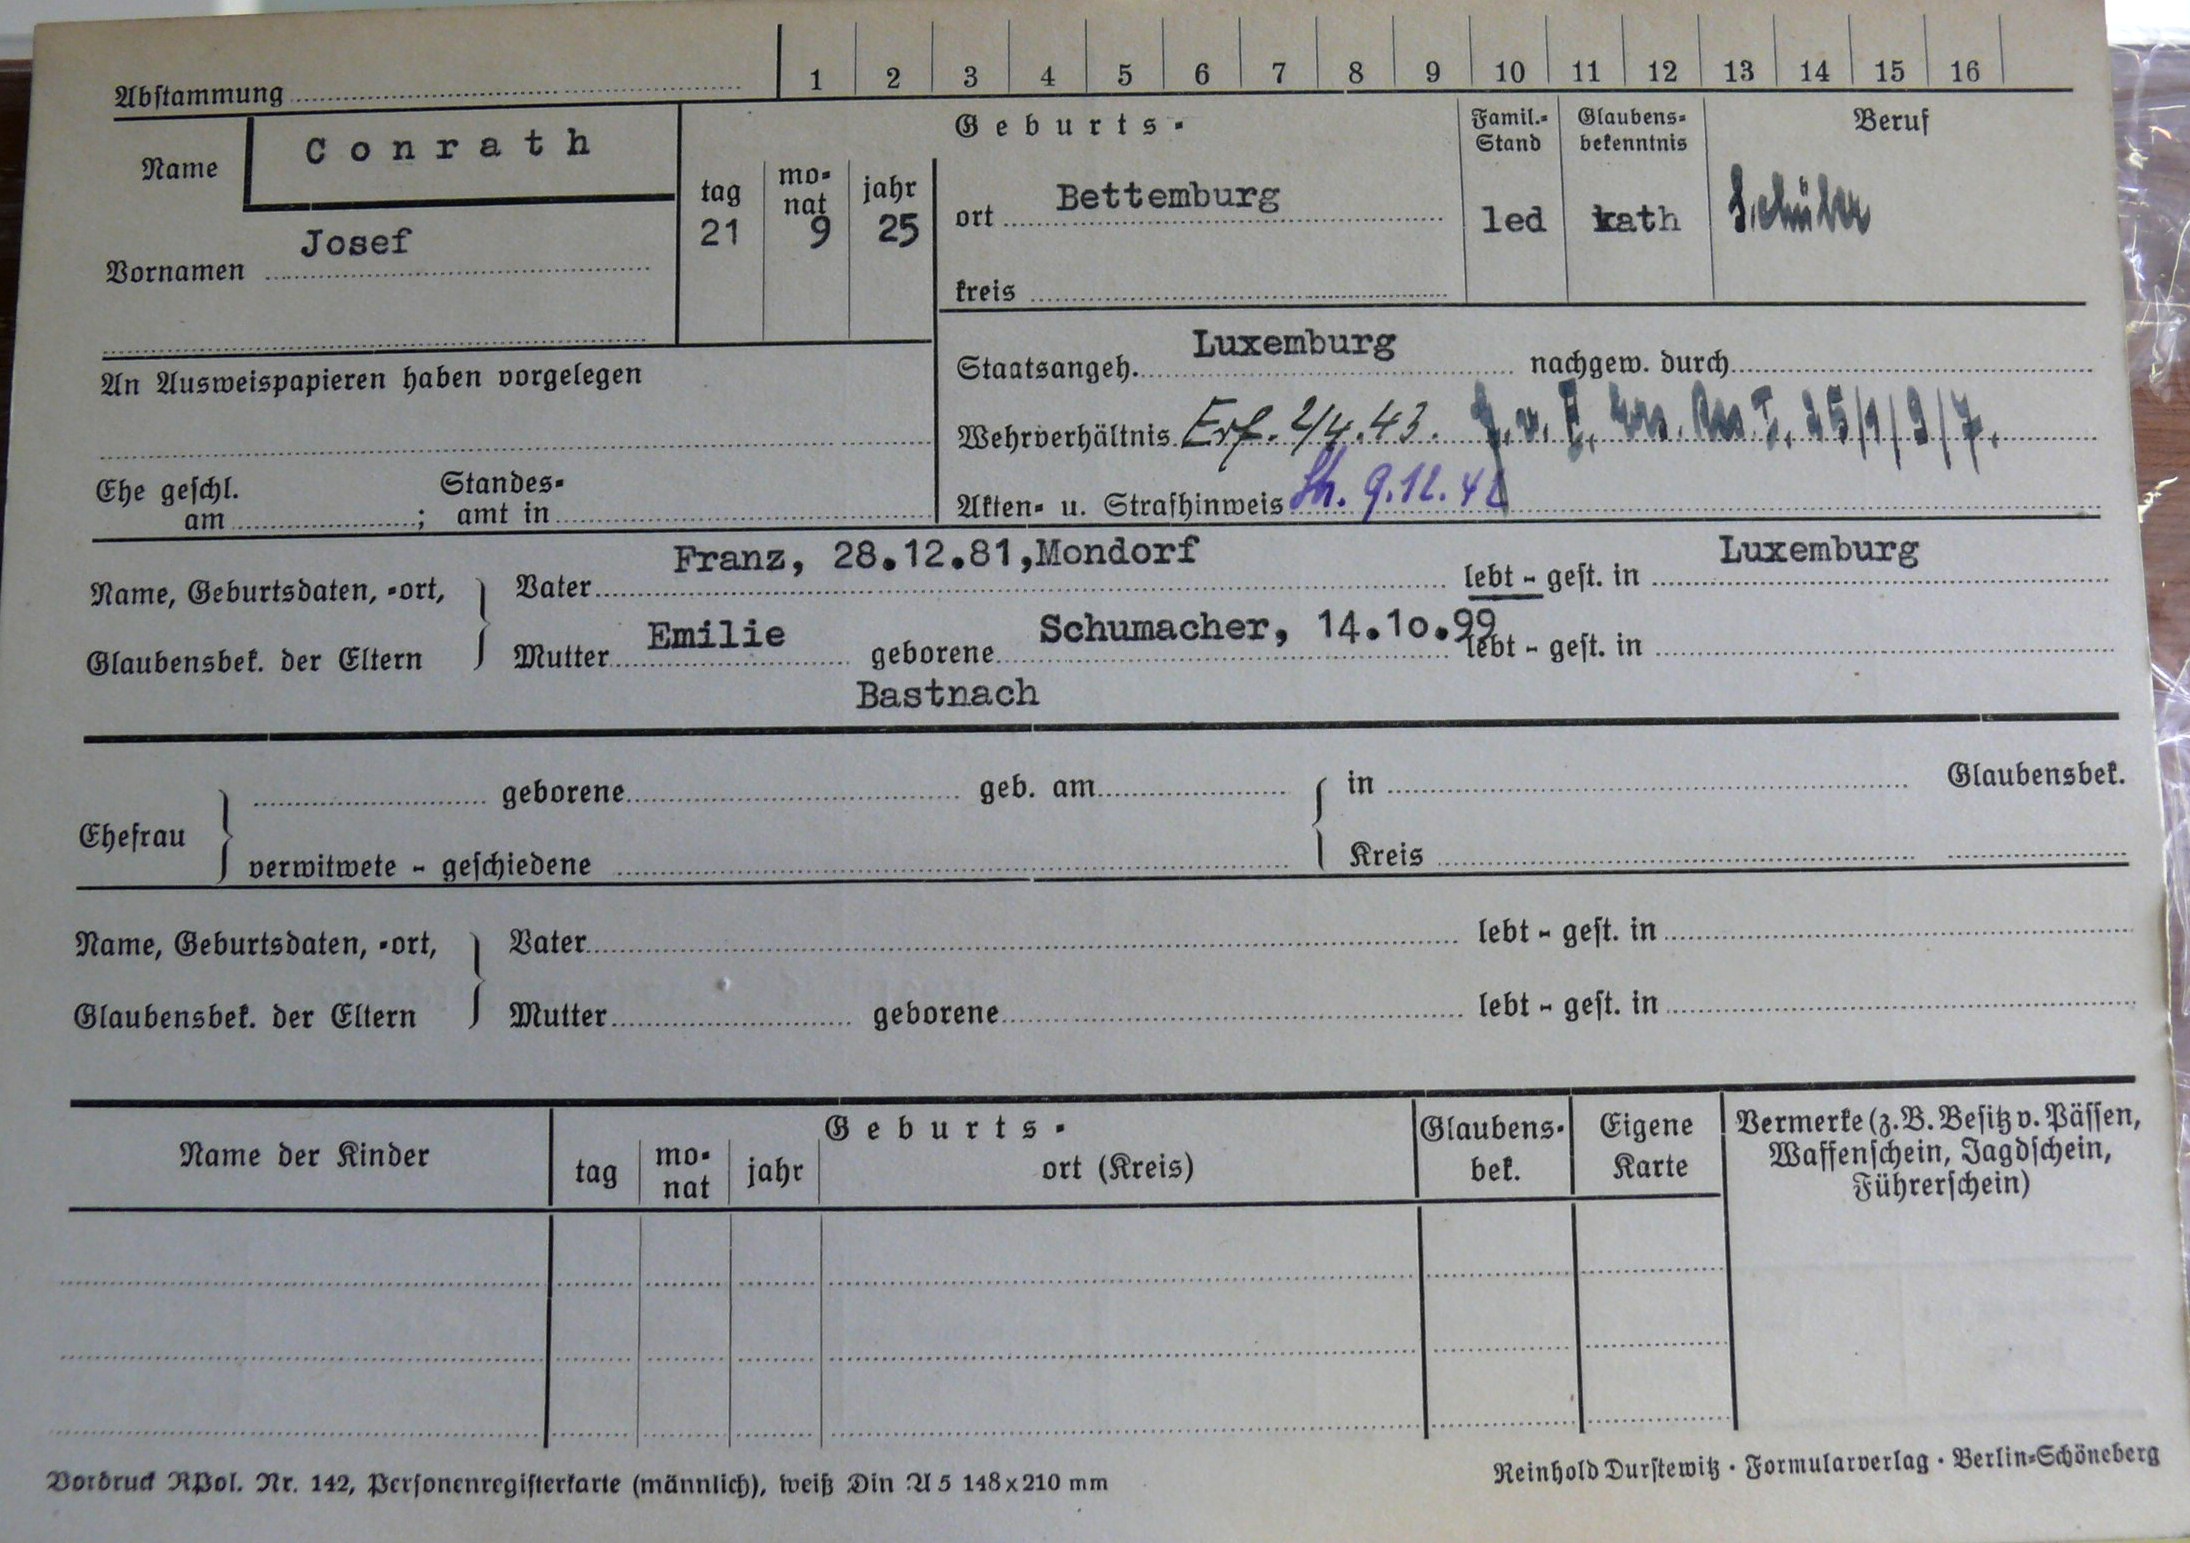 Abstammung 1 2 3 4 5 6 7 8 9 10 11 12 13 14 15 16
Name Conrath
Vornamen Josef
Geburts-
tag monat jahr
21 9 25
ort Bettemburg
kreis
Famil.-Stand
led
Glaubensbekenntnis
kath
Beruf
Schüler
An Ausweispapieren haben vorgelegen
Staatsangeh. Luxemburg nachgew. durch
Wehrverhältnis Erf. 2/4.43.
Ehe geschl. am ; Standesamt in
Akten- u. Strafhinweis 9.12.42
Name, Geburtsdaten, -ort, Glaubensbek. der Eltern
Vater Franz, 28.12.81,Mondorf lebt - gest. in Luxemburg
Mutter Emilie geborene Schumacher, 14.10.99 lebt - gest. in
Bastnach
Ehefrau geborene geb. am in Glaubensbek.
verwitwete - geschiedene Kreis
Name, Geburtsdaten, -ort, Glaubensbek. der Eltern
Vater lebt - gest. in
Mutter geborene lebt - gest. in
Name der Kinder
Geburts-
tag monat jahr ort (Kreis)
Glaubens-
bek.
Eigene
Karte
Vermerke (z. B. Besitz v. Pässen,
Waffenschein, Jagdschein,
Führerschein)
Vordruck RPol. Nr. 142, Personenregisterkarte (männlich), weiß Din A 5 148 x 210 mm
Reinhold Durstewitz · Formularverlag · Berlin-Schöneberg